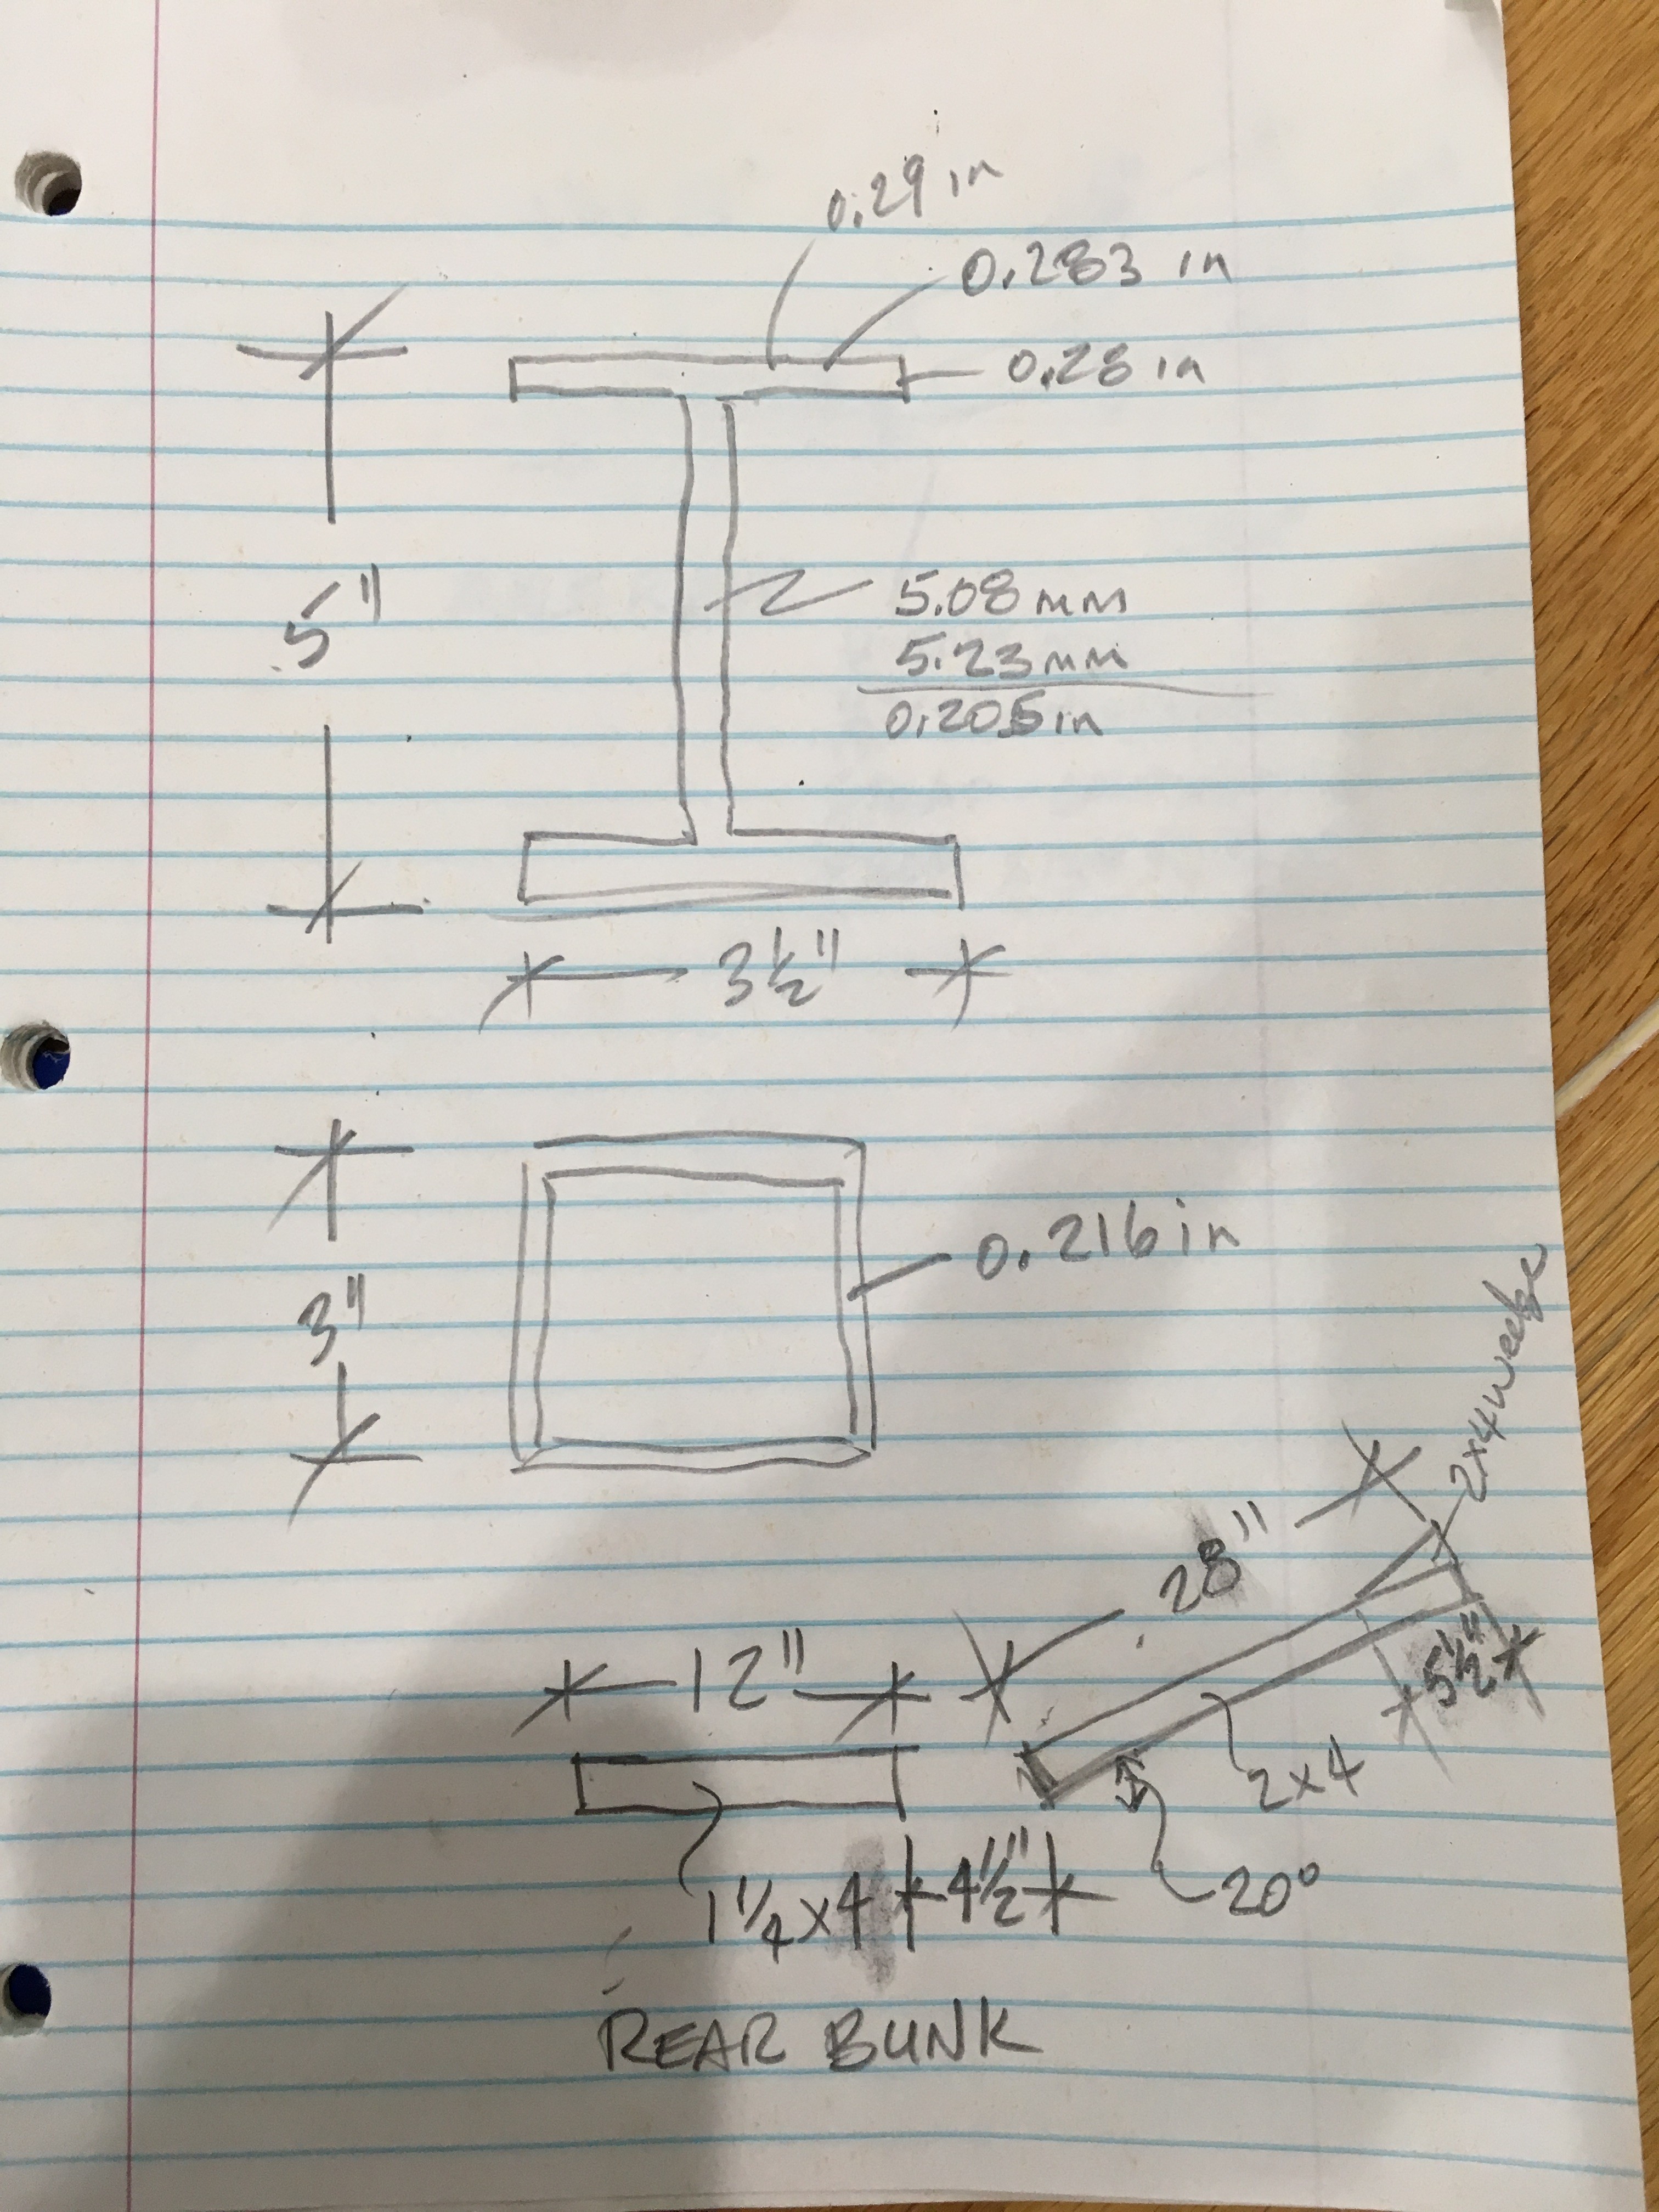 0.29 in
0.283 in
0.28 in
5"
5.08 mm
5.23 mm
0.205 in
3 1/2"
3"
0.216 in
2x4 wedge
28"
12"
5 1/2"
2x4
1 1/4 x 4
4 1/2"
20°
REAR BUNK